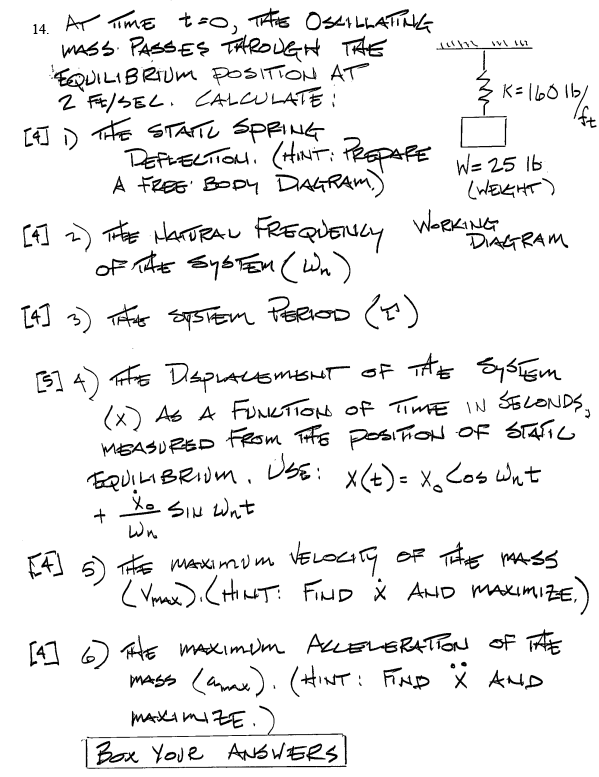 14. AT TIME t=0, THE OSCILLATING
MASS PASSES THROUGH THE
EQUILIBRIUM POSITION AT
2 FT/SEC. CALCULATE:
K=160 lb/ft
[4] 1) THE STATIC SPRING
DEFLECTION. (HINT: PREPARE
A FREE BODY DIAGRAM.)
W=25 lb
(WEIGHT)
WORKING
DIAGRAM
[4] 2) THE NATURAL FREQUENCY
OF THE SYSTEM (ωn)
[4] 3) THE SYSTEM PERIOD (τ)
[5] 4) THE DISPLACEMENT OF THE SYSTEM
(x) AS A FUNCTION OF TIME IN SECONDS,
MEASURED FROM THE POSITION OF STATIC
EQUILIBRIUM. USE: x(t) = x₀ cos ωnt
+ ẋ₀/ωn SIN ωnt
[4] 5) THE MAXIMUM VELOCITY OF THE MASS
(Vmax). (HINT: FIND ẋ AND MAXIMIZE.)
[4] 6) THE MAXIMUM ACCELERATION OF THE
MASS (amax). (HINT: FIND ẍ AND
MAXIMIZE.)
BOX YOUR ANSWERS